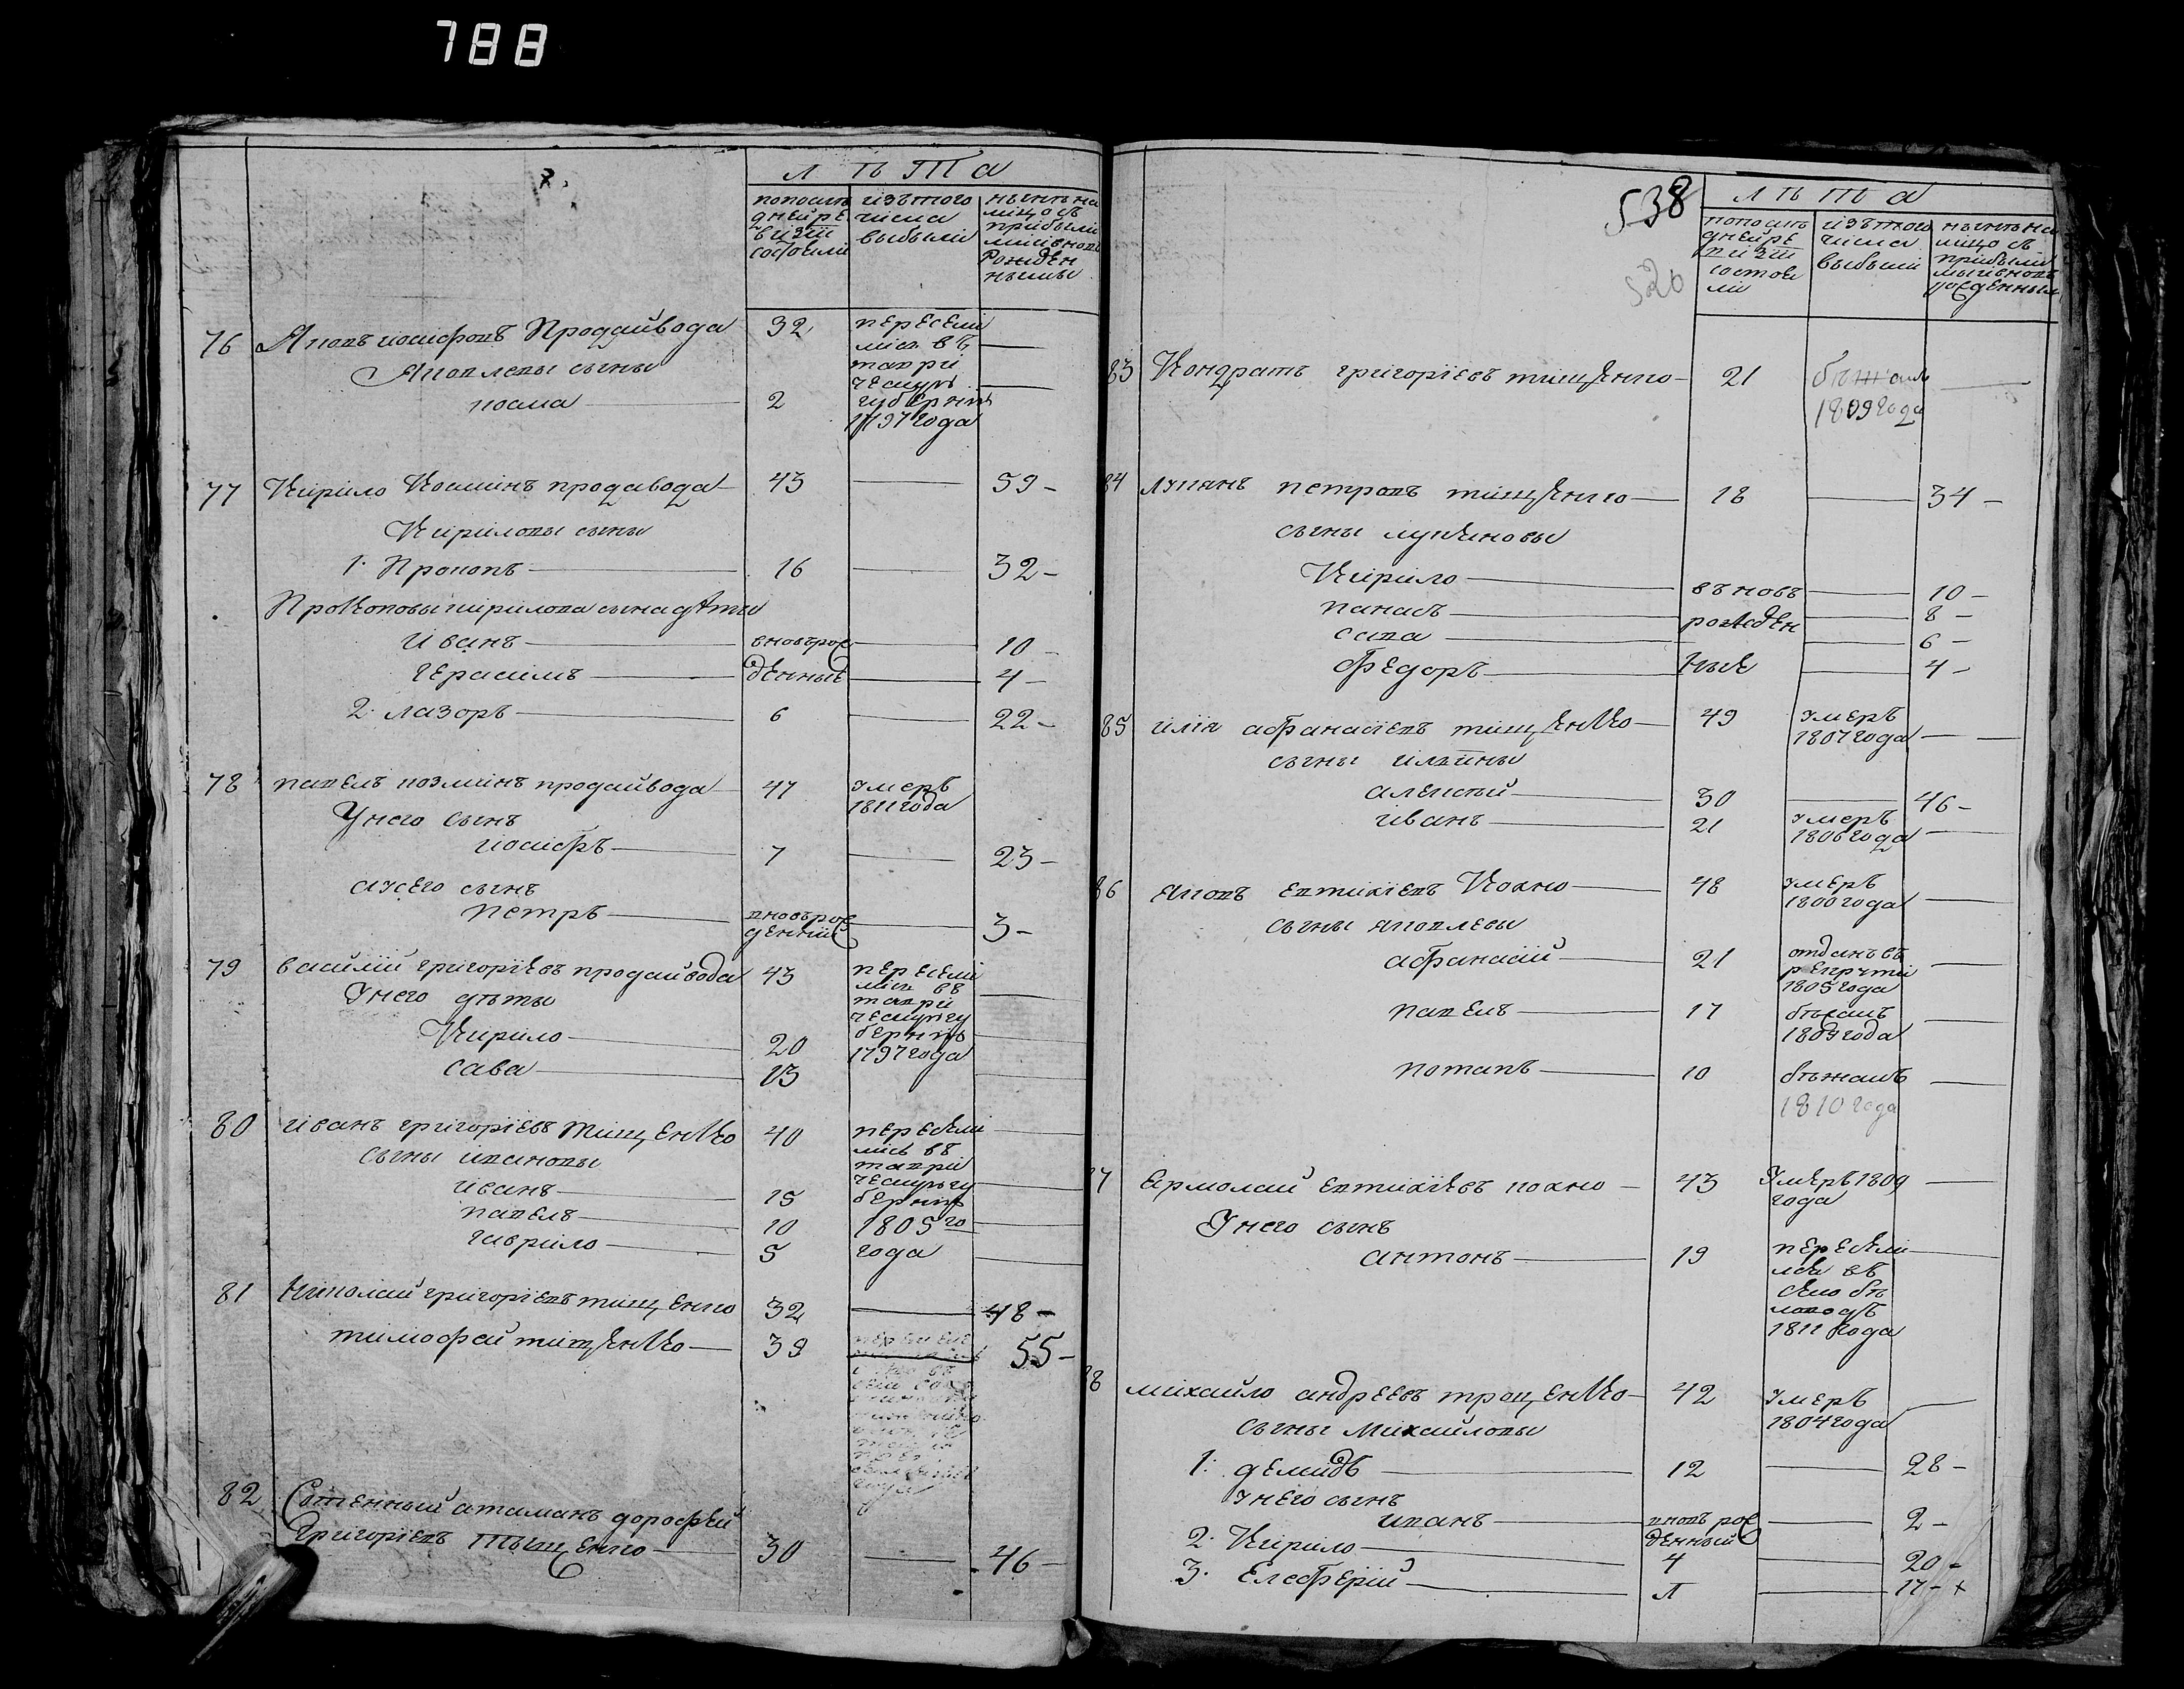 788
7.
лѣта
попослѣ
дней ре
визіи
состояли
изътого
числа
выбыли
нынѣна
лицо съ
прибыли
ми ивновь
рожден
ными
76 Яковъ иосифовъ Продайвода 32
Яковлевы сыны
косма 2
пересели
лись въ
таври
ческую
губернію
1797 года
77 Кирило Косминъ продавода 43 59
Кириловы сыны
1. Прокопъ 16 32
Прокоповы кирилова сына дѣты
иванъ вновьрож 10
герасимъ денные 4
2. лазоръ 6 22
78 павелъ козминъ продайвода 47 умеръ
1811 года
Унего сынъ
иосифъ 7 23
аусего сынъ
петръ вновьрож
денній 3
79 василій григоріевъ продайвода 43
Унего дѣты
Кирило 20
сава 13
пересели
лись въ
таври
ческую гу
бернію
1797 года
80 иванъ григоріевъ тищенко 40
сыны ивановы
иванъ 15
павелъ 10
гаврило 5
пересели
лись въ
таври
ческую гу
бернію
1805го
года
81 Николай григоріевъ тищенко 32 48
тимофей тищенко 39 55
82 Сотенный атаманъ дорофей
Григоріевъ Тыщенко 30 46
538
526
лѣта
попослѣ
дней ре
визіи
состоя
ли
изътого
числа
выбыли
нынѣна
лицо съ
прибыли
мы ивновь
рожденным
83 Кондратъ григоріевъ тищенко 21 бѣжалъ
1809 года
84 лукянъ петровъ тищенко 18 34
сыны лукяновы
Кирило въновь 10
панасъ рожден 8
сава 6
федоръ ные 4
85 илія афанасіевъ тищенко 49 умеръ
1807 года
сыны ильины
алексѣй 30 46
иванъ 21 умеръ
1806 года
86 яковъ евтихіевъ Кохно 48 умеръ
1800 года
сыны яковлевы
афанасій 21 отданъ въ
рекруты
1805 года
павелъ 17 бѣжалъ
1809 года
потапъ 10 бѣжалъ
1810 года
87 Ермолай евтихіевъ кохно 43 Умеръ 1809
года
Унего сынъ
антонъ 19 пересели
лся въ
село бѣ
ловодъ
1811 года
88 михайло андреевъ троценко 42 умеръ
1804 года
сыны Михайловы
1. демидъ 12 28
унего сынъ
иванъ вновь рож
денный 2
2. Кирило 4 20
3. Елеферій 17 +